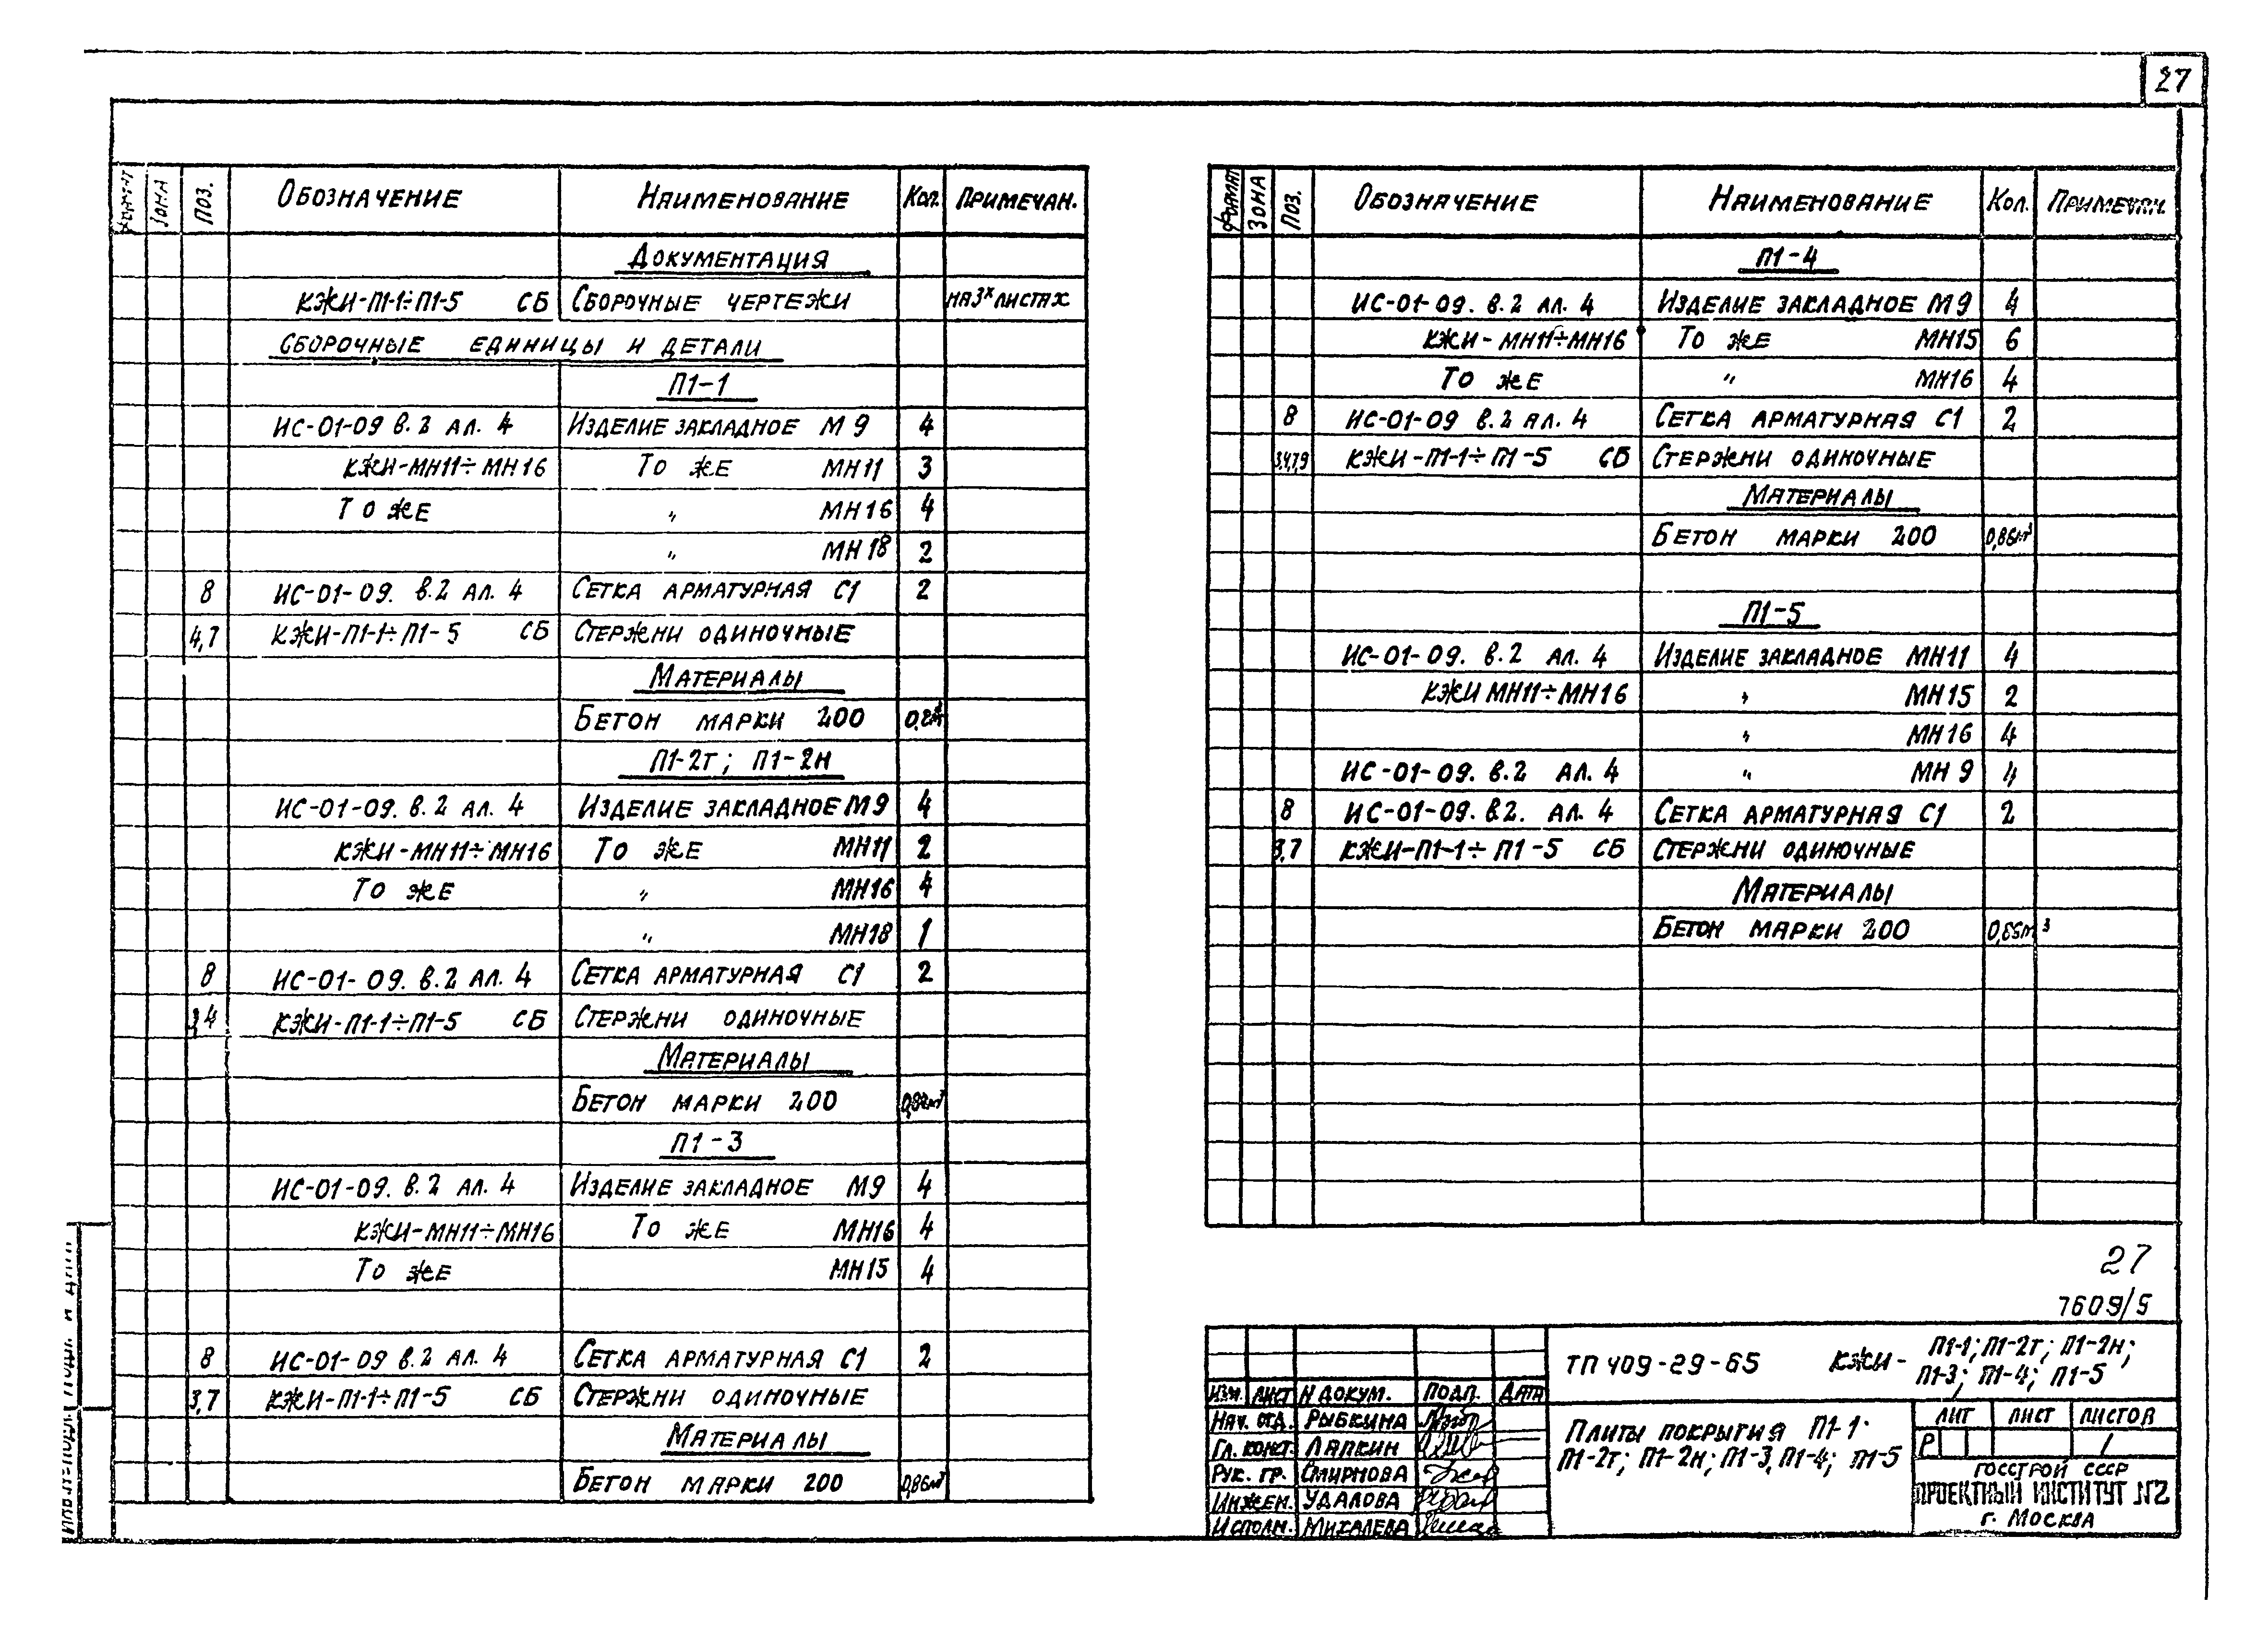 27
ЗОНА ПОЗ. ОБОЗНАЧЕНИЕ НАИМЕНОВАНИЕ КОЛ. ПРИМЕЧАН.
ДОКУМЕНТАЦИЯ
КЖИ-П1-1÷П1-5 СБ СБОРОЧНЫЕ ЧЕРТЕЖИ НА 3х ЛИСТАХ
СБОРОЧНЫЕ ЕДИНИЦЫ И ДЕТАЛИ
П1-1
ИС-01-09 В.2 АЛ. 4 ИЗДЕЛИЕ ЗАКЛАДНОЕ М 9 4
КЖИ-МН11÷МН16 ТО ЖЕ МН11 3
ТО ЖЕ " МН16 4
" МН18 2
8 ИС-01-09. В.2 АЛ. 4 СЕТКА АРМАТУРНАЯ С1 2
4,7 КЖИ-П1-1÷П1-5 СБ СТЕРЖНИ ОДИНОЧНЫЕ
МАТЕРИАЛЫ
БЕТОН МАРКИ 200
П1-2т; П1-2н
ИС-01-09. В.2 АЛ. 4 ИЗДЕЛИЕ ЗАКЛАДНОЕ М9 4
КЖИ-МН11÷МН16 ТО ЖЕ МН11 2
ТО ЖЕ " МН16 4
" МН18 1
8 ИС-01-09. В.2 АЛ. 4 СЕТКА АРМАТУРНАЯ С1 2
4 КЖИ-П1-1÷П1-5 СБ СТЕРЖНИ ОДИНОЧНЫЕ
МАТЕРИАЛЫ
БЕТОН МАРКИ 200
П1-3
ИС-01-09. В.2 АЛ. 4 ИЗДЕЛИЕ ЗАКЛАДНОЕ М9 4
КЖИ-МН11÷МН16 ТО ЖЕ МН16 4
ТО ЖЕ МН15 4
8 ИС-01-09 В.2 АЛ. 4 СЕТКА АРМАТУРНАЯ С1 2
3,7 КЖИ-П1-1÷П1-5 СБ СТЕРЖНИ ОДИНОЧНЫЕ
МАТЕРИАЛЫ
БЕТОН МАРКИ 200 0,86м³
ФОРМАТ ЗОНА ПОЗ. ОБОЗНАЧЕНИЕ НАИМЕНОВАНИЕ КОЛ. ПРИМЕЧАН.
П1-4
ИС-01-09. В.2 АЛ. 4 ИЗДЕЛИЕ ЗАКЛАДНОЕ М9 4
КЖИ-МН11÷МН16 ТО ЖЕ МН15 6
ТО ЖЕ " МН16 4
8 ИС-01-09 В.2 АЛ. 4 СЕТКА АРМАТУРНАЯ С1 2
3,4,7,9 КЖИ-П1-1÷П1-5 СБ СТЕРЖНИ ОДИНОЧНЫЕ
МАТЕРИАЛЫ
БЕТОН МАРКИ 200 0,86м³
П1-5
ИС-01-09. В.2 АЛ. 4 ИЗДЕЛИЕ ЗАКЛАДНОЕ МН11 4
КЖИ МН11÷МН16 " МН15 2
" МН16 4
ИС-01-09. В.2 АЛ. 4 " МН 9 4
8 ИС-01-09. В.2. АЛ. 4 СЕТКА АРМАТУРНАЯ С1 2
3,7 КЖИ-П1-1÷П1-5 СБ СТЕРЖНИ ОДИНОЧНЫЕ
МАТЕРИАЛЫ
БЕТОН МАРКИ 200 0,85м³
27
7609/5
ТП 409-29-65 КЖИ- П1-1; П1-2т; П1-2н;
П1-3; П1-4; П1-5
ИЗМ. ЛИСТ N ДОКУМ. ПОДП. ДАТА
НАЧ. ОТД. РЫБКИНА
ГЛ. КОНСТ. ЛАПКИН
РУК. ГР. СМИРНОВА
ИНЖЕН. УДАЛОВА
ИСПОЛН. МИХАЛЕВА
ПЛИТЫ ПОКРЫТИЯ П1-1
П1-2т; П1-2н; П1-3, П1-4; П1-5
ЛИТ ЛИСТ ЛИСТОВ
Р 1
ГОССТРОЙ СССР
ПРОЕКТНЫЙ ИНСТИТУТ №2
г. МОСКВА